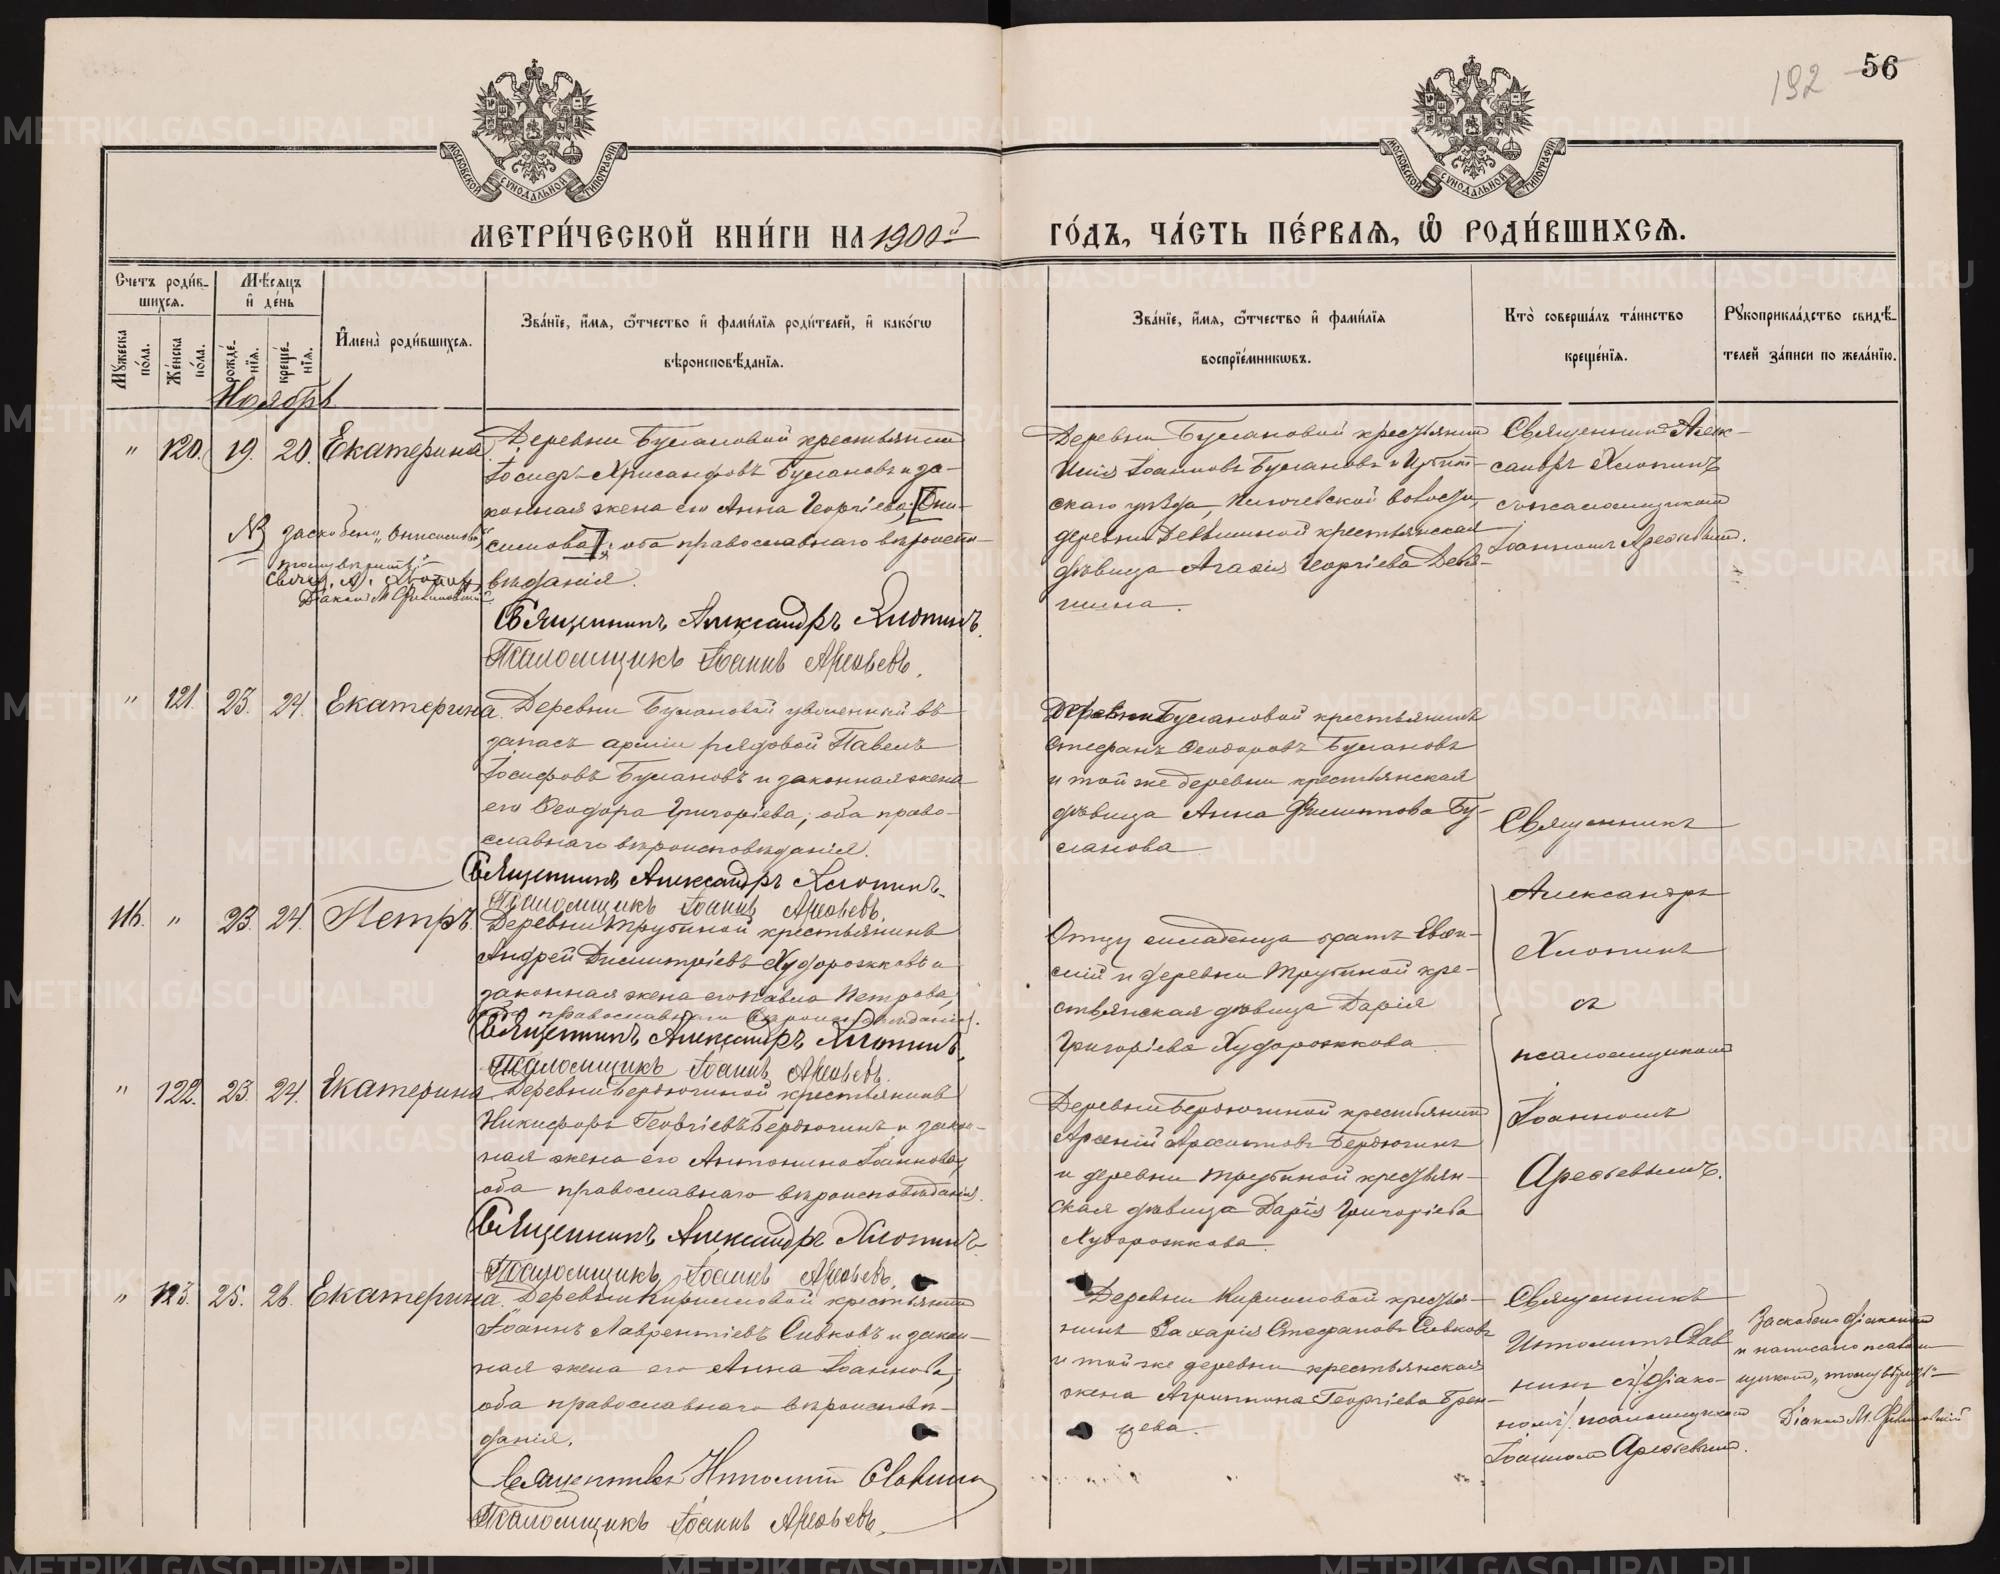 192 56
МОСКОВСКОЙ СУНОДАЛЬНОЙ ТИПОГРАФІИ
МОСКОВСКОЙ СУНОДАЛЬНОЙ ТИПОГРАФІИ
МЕТРИ́ЧЕСКОЙ КНИ́ГИ НА 1900й
ГО́ДЪ, ЧА́СТЬ ПЕ́РВАѦ, Ѽ РОДИ́ВШИХСѦ.
Счетъ роди́в-
шихсѧ.
Мѣсѧцъ
и҆ де́нь
Мꙋ́жеска по́ла.
Же́нска по́ла.
рожде́нїѧ.
креще́нїѧ.
И҆мена̀ роди́вшихсѧ.
Зва́нїе, и҆́мѧ, ѻ҆́тчество и҆ фами́лїѧ роди́телей, и҆ како́гѡ
вѣроисповѣ́данїѧ.
Зва́нїе, и҆́мѧ, ѻ҆́тчество и҆ фами́лїѧ
воспрїе́мникѡвъ.
Кто̀ соверша́лъ та́инство
креще́нїѧ.
Рꙋкоприкла́дство свидѣ́-
телей за́писи по жела́нїю.
Ноябрь
" 120. 19. 20. Екатерина
Деревни Буслановой крестьянинъ
Іосифъ Хрисанфовъ Буслановъ и за-
конная жена его Анна Георгіева, [Они-
симова]; оба православнаго вѣроиспо-
вѣданія.
Священникъ Александръ Хлопинъ.
Псаломщикъ Іоаннъ Арефьевъ.
NB заскоблено „Онисимова"
тому вѣрить:
Діаконъ М.
Деревни Буслановой крестьянинъ
Іоанновъ Буслановъ и Ирбит-
скаго уѣзда, Ключевской волости,
деревни Девяшиной крестьянская
дѣвица Агафія Георгіева Девя-
шина.
Священникъ Алек-
сандръ Хлопинъ
съ псаломщикомъ
Іоанномъ Арефьевымъ.
" 121. 23. 24. Екатерина.
Деревни Буслановой уволенный въ
запасъ арміи рядовой Павелъ
Іосифовъ Буслановъ и законная жена
его Ѳеодора Григоріева; оба право-
славнаго вѣроисповѣданія.
Священникъ Александръ Хлопинъ.
Псаломщикъ Іоаннъ Арефьевъ.
Деревни Буслановой крестьянинъ
Стефанъ Ѳеодоровъ Буслановъ
и той же деревни крестьянская
дѣвица Анна Филиппова Бу-
сланова
Священникъ
Александръ
Хлопинъ
съ
псаломщикомъ
Іоанномъ
Арефьевымъ.
116. " 23. 24. Петръ.
Деревни Трубиной крестьянинъ
Андрей Димитріевъ Худорожковъ и
законная жена его Павла Петрова,
оба православнаго вѣроисповѣданія.
Священникъ Александръ Хлопинъ.
Псаломщикъ Іоаннъ Арефьевъ.
Отцу младенца братъ Евѳи-
мій и деревни Трубиной кре-
стьянская дѣвица Дарія
Григоріева Худорожкова
" 122. 23. 24. Екатерина
Деревни Бердюгиной крестьянинъ
Никифоръ Георгіевъ Бердюгинъ и закон-
ная жена его Антонина Іоаннова,
оба православнаго вѣроисповѣданія.
Священникъ Александръ Хлопинъ
Псаломщикъ Іоаннъ Арефьевъ.
Деревни Бердюгиной крестьянинъ
Арсеній Архиповъ Бердюгинъ
и деревни Трубиной крестьян-
ская дѣвица Дарія Григоріева
Худорожкова.
" 123. 25. 26. Екатерина.
Деревни Кирилловой крестьянинъ
Іоаннъ Лаврентіевъ Сивковъ и закон-
ная жена его Анна Іоаннова;
оба православнаго вѣроисповѣ-
данія.
Священникъ Ипполитъ Славнинъ
Псаломщикъ Іоаннъ Арефьевъ.
Деревни Кирилловой крестья-
нинъ Захарія Стефановъ Сивковъ
и той же деревни крестьянская
жена Агриппина Георгіева
Священникъ
Ипполитъ Слав-
нинъ съ діако-
номъ псаломщикомъ
Іоанномъ Арефьевымъ.
Заскоблено діакономъ
и написано псалом-
щикомъ „тому вѣрить"
Діаконъ М.
METRIKI.GASO-URAL.RU